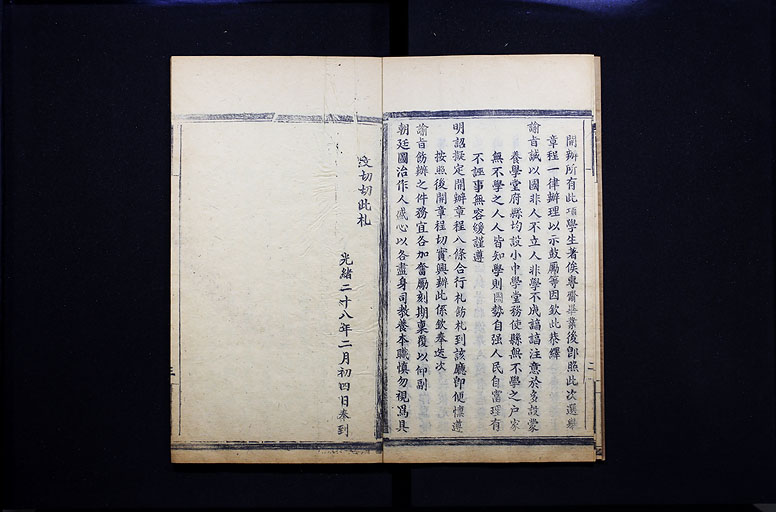 開辦所有此項學生著俟專齋畢業後卽照此次選舉
章程一律辦理以示鼓勵等因欽此恭繹
諭旨誠以國非人不立人非學不成諄諄注意於多設蒙
養學堂府縣均設小中學堂務使縣無不學之戶家
無不學之人人皆知學則國勢自强人民自富理有
不誣事無容緩謹遵
明詔擬定開辦章程八條合行札飭札到該廳卽便懍遵
按照後開章程切實興辦此係欽奉迭次
諭旨飭辦之件務宜各加奮勵刻期稟覆以仰副
朝廷圖治作人盛心以各盡身司教養本職愼勿視爲具
文切切此札
光緒二十八年二月初四日奉到
二
三